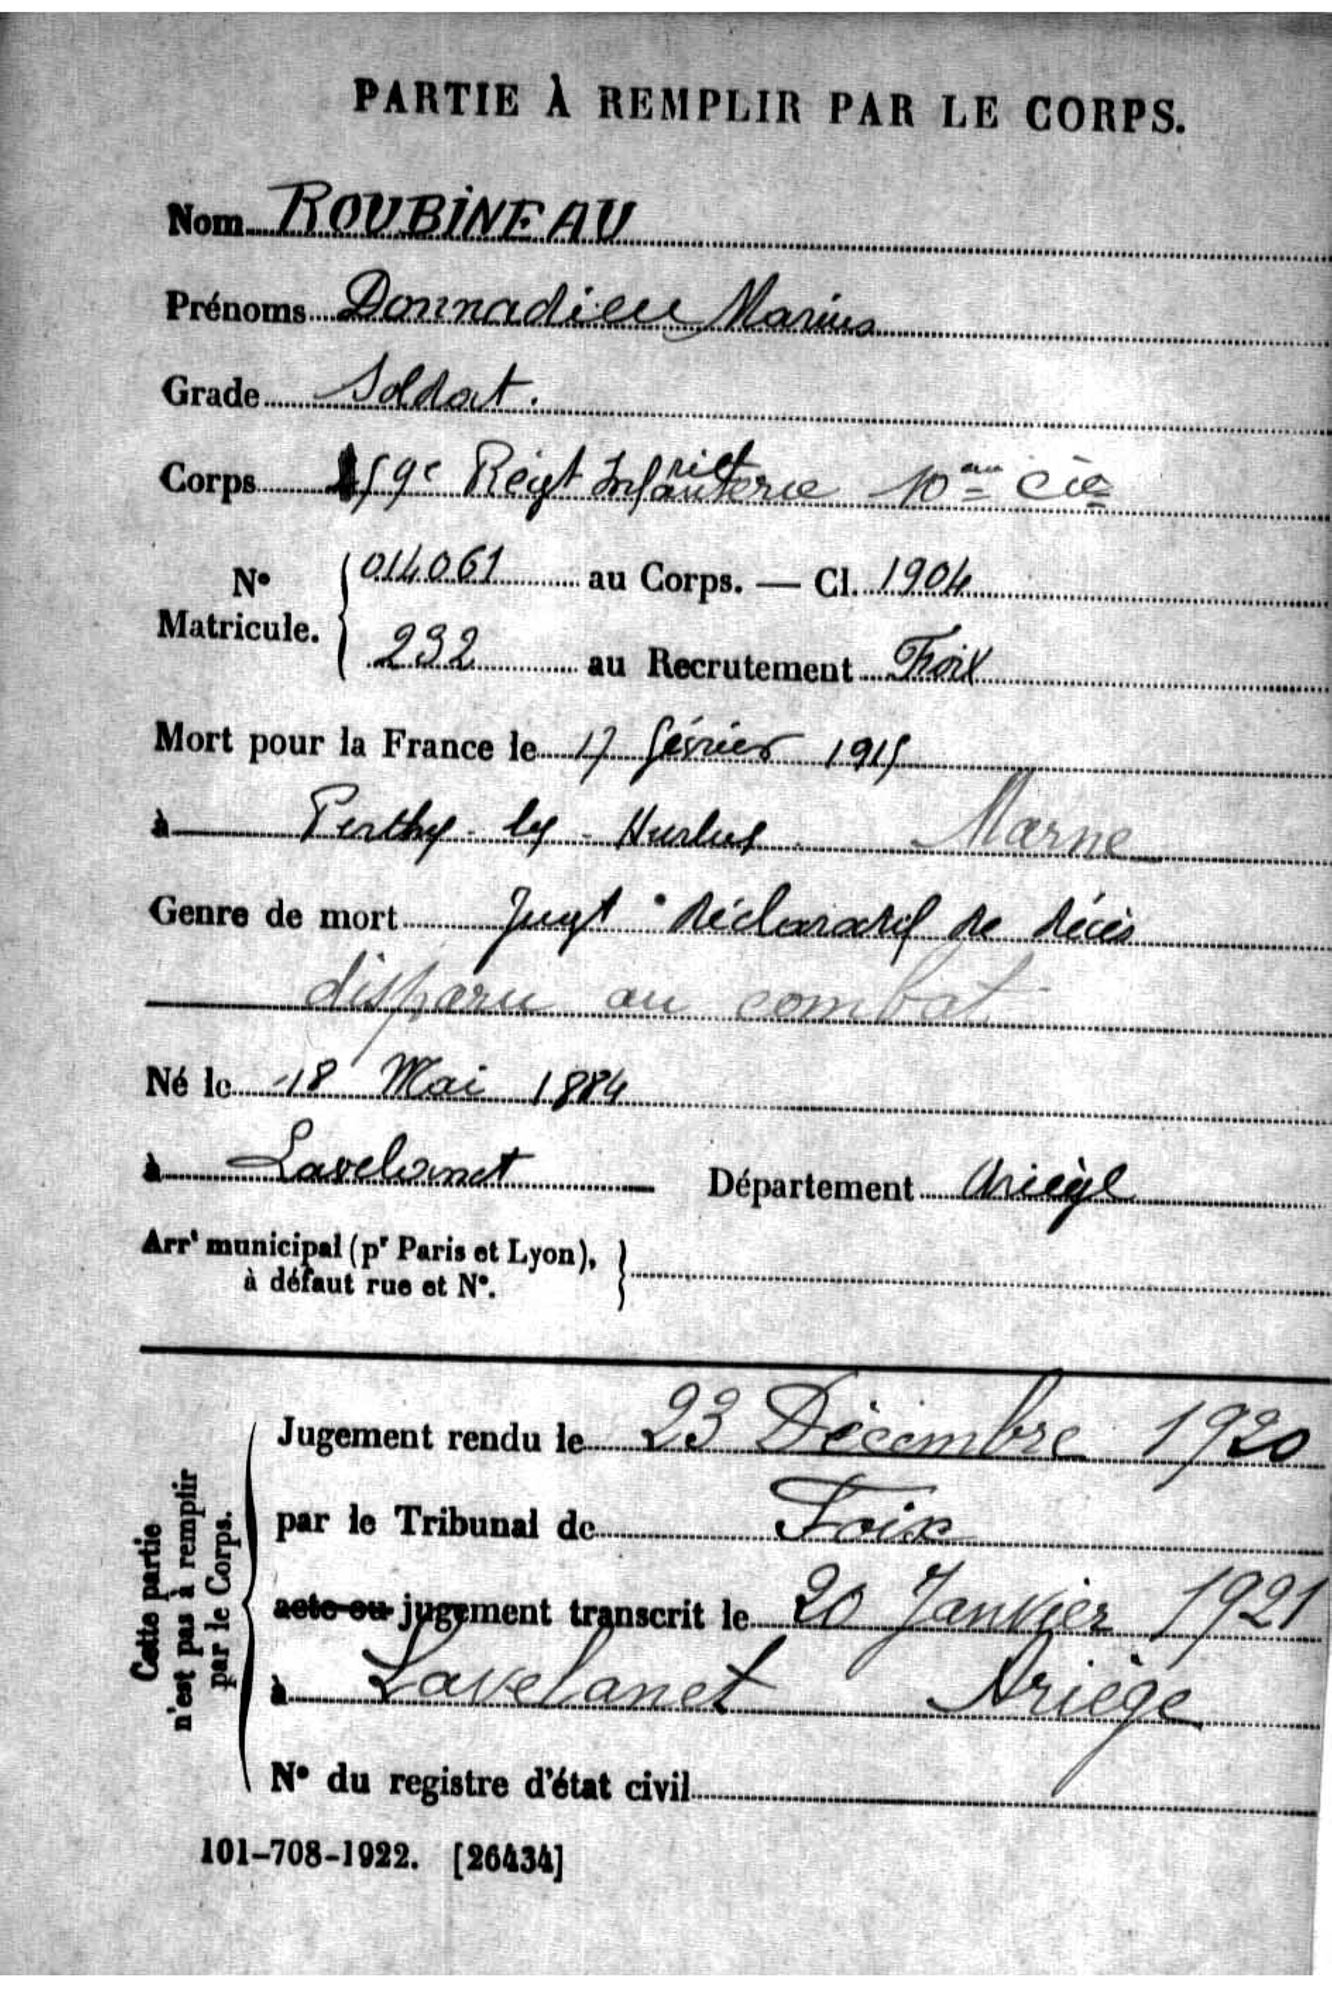 PARTIE À REMPLIR PAR LE CORPS.
Nom ROUBINEAU
Prénoms Donnadieu Marius
Grade Soldat.
Corps 59e Régt Infanterie 10 Cie
No Matricule. 014061 au Corps. — Cl. 1904
232 au Recrutement Foix
Mort pour la France le 17 février 1915
à Perthes-les-Hurlus Marne
Genre de mort Jugt déclaratif de décès
disparu au combat
Né le 18 Mai 1884
à Lavelanet Département Ariège
Arrt municipal (pr Paris et Lyon),
à défaut rue et No.
Cette partie
n'est pas à remplir
par le Corps.
Jugement rendu le 23 Décembre 1920
par le Tribunal de Foix
acte ou jugement transcrit le 20 Janvier 1921
à Lavelanet Ariège
No du registre d'état civil
101-708-1922. [26434]